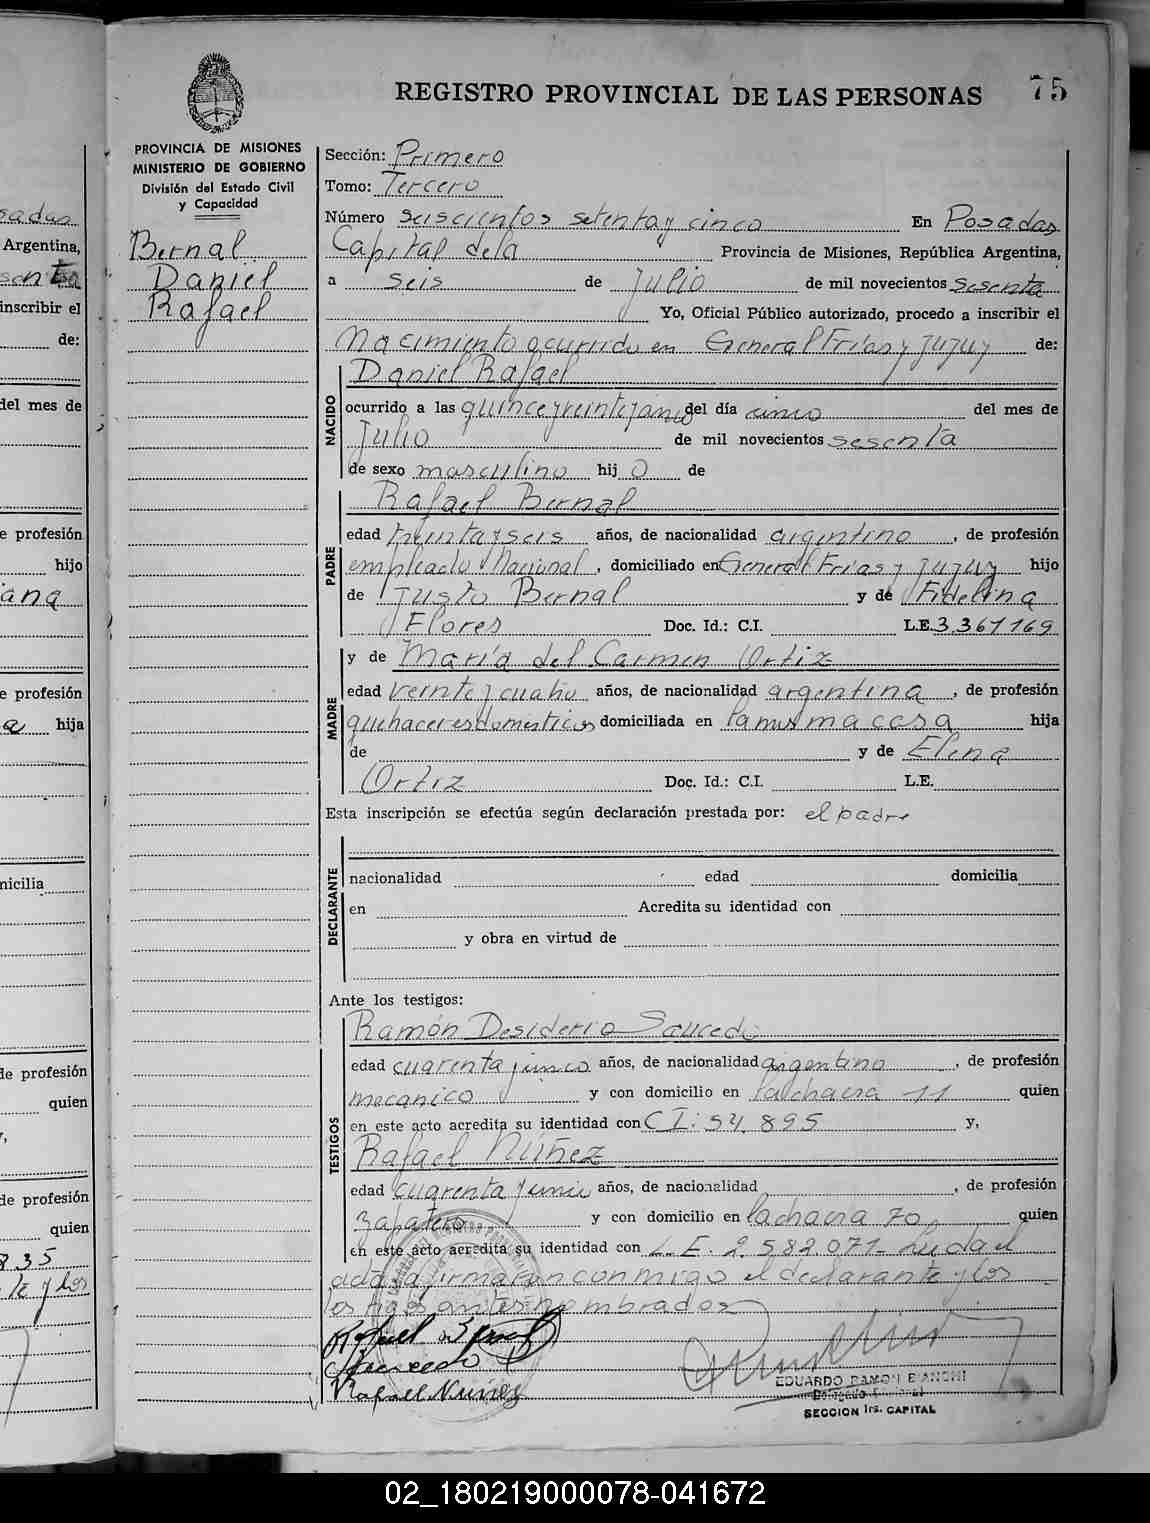 REGISTRO PROVINCIAL DE LAS PERSONAS 75
PROVINCIA DE MISIONES
MINISTERIO DE GOBIERNO
División del Estado Civil
y Capacidad
Bernal
Daniel
Rafael
Sección: Primero
Tomo: Tercero
Número seiscientos setenta y cinco En Posadas
Capital de la Provincia de Misiones, República Argentina,
a seis de Julio de mil novecientos sesenta
Yo, Oficial Público autorizado, procedo a inscribir el
Nacimiento ocurrido en General Frías y Jujuy de:
NACIDO
Daniel Rafael
ocurrido a las quince y veinte y del día cinco del mes de
Julio de mil novecientos sesenta
de sexo masculino hijo de
PADRE
Rafael Bernal
edad treinta y seis años, de nacionalidad argentino, de profesión
empleado Nacional, domiciliado en General Frías y Jujuy hijo
de Justo Bernal y de Fidelina
Flores Doc. Id.: C.I. L.E. 3.361769
MADRE
y de María del Carmen Ortiz
edad veinte y cuatro años, de nacionalidad argentina, de profesión
quehaceres domésticos domiciliada en la misma casa hija
de y de Elena
Ortiz Doc. Id.: C.I. L.E.
Esta inscripción se efectúa según declaración prestada por: el padre
DECLARANTE
nacionalidad edad domicilia
en Acredita su identidad con
y obra en virtud de
Ante los testigos:
TESTIGOS
Ramón Desiderio Saucedo
edad cuarenta y cinco años, de nacionalidad argentino, de profesión
mecanico y con domicilio en la chacra 11 quien
en este acto acredita su identidad con CI: 54.895 y,
Rafael Núñez
edad cuarenta y años, de nacionalidad , de profesión
zapatero y con domicilio en la chacra 70 quien
en este acto acredita su identidad con L.E. 2.582.071- Leida el
acta la firmaran conmigo el declarante y los
testigos antes nombrados
Rafael Bernal
Saucedo
Rafael Nuñez
EDUARDO RAMON BIANCHI
Delegado Seccional
SECCION 1ra. CAPITAL
sadas
Argentina,
inscribir el
de:
del mes de
e profesión
hijo
iana
e profesión
a hija
nicilia
de profesión
quien
de profesión
quien
835
te y los
02_180219000078-041672